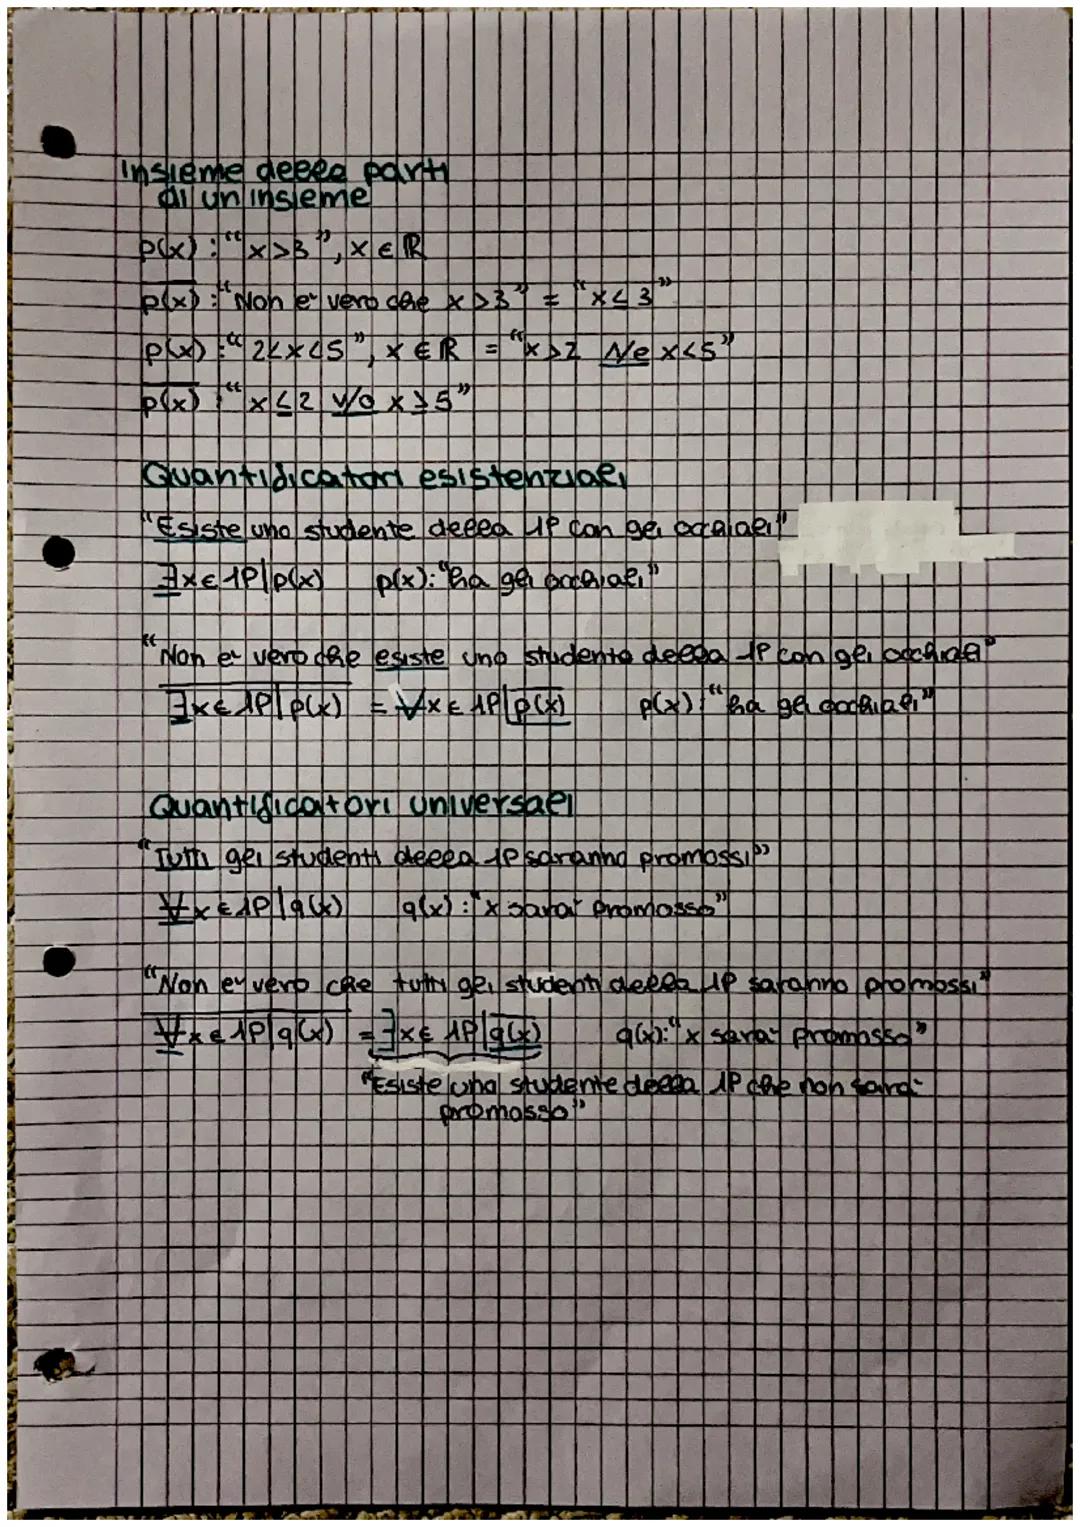 Insieme delle parti
di un insieme
p(x) : “x>3”, x ∈ ℝ
p̅(̅x̅)̅ : “Non è vero che x>3” = “x≤3”
p(x) : “2<x<5”, x ∈ ℝ = “x>2 ∧/e x<5”
p̅(̅x̅)̅ : “x≤2 ∨/o x≥5”
Quantificatori esistenziali
“Esiste uno studente della 1P con gli occhiali”
∃x∈1P|p(x) p(x): “ha gli occhiali”
“Non è vero che esiste uno studente della 1P con gli occhiali”
∃̅x̅∈̅1̅P̅|̅p̅(̅x̅)̅ = ∀x∈1P|p̅(̅x̅)̅ p(x): “ha gli occhiali”
Quantificatori universali
“Tutti gli studenti della 1P saranno promossi”
∀x∈1P|q(x) q(x): “x sarà promosso”
“Non è vero che tutti gli studenti della 1P saranno promossi”
∀̅x̅∈̅1̅P̅|̅q̅(̅x̅)̅ = ∃x∈1P|q̅(̅x̅)̅ q(x): “x sarà promosso”
“Esiste uno studente della 1P che non sarà
promosso”